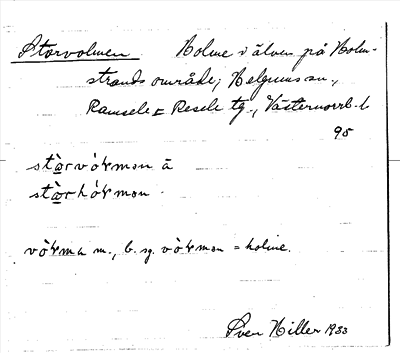 Storvolmen Holme i älven på Holm-
strands område; Helgums sn.,
Ramsele o Resele tg., Västernorrl. l.
95
stòrvóɽmən ä
stòrhóɽmən
vòɽma m., b. sg. vòɽmən = holme.
Sven Hiller 1933